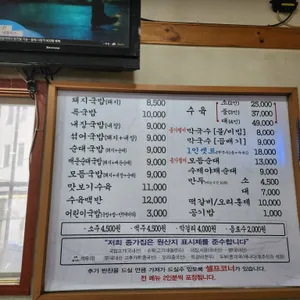 돼지국밥(돼지) 8,500
특국밥 10,000
내장국밥(내장) 9,000
섞어국밥(돼지+내장) 9,000
순대국밥 9,000
매운순대국밥 9,000
모듬국밥 9,000
맛보기수육 11,000
수육백반 12,000
어린이국밥 3,000
수육 소 25,000
중 37,000
대 49,000
막국수[물/비빔] 8,000
막국수[곱빼기] 9,000
1인셋트 18,000
모듬순대 13,000
수제야채순대 9,000
만두 소 4,500
대 7,000
떡갈비/오리훈제 10,000
공기밥 1,000
· 소주 4,500원 · 맥주 4,500원 · 막걸리 4,000원 · 음료수 2,000원
"저희 종가집은 원산지 표시제를 준수합니다"
추가 반찬을 드실 만큼 가져가 드실수 있도록 셀프코너가 있습니다.
전 메뉴 2인분씩 포장됩니다.